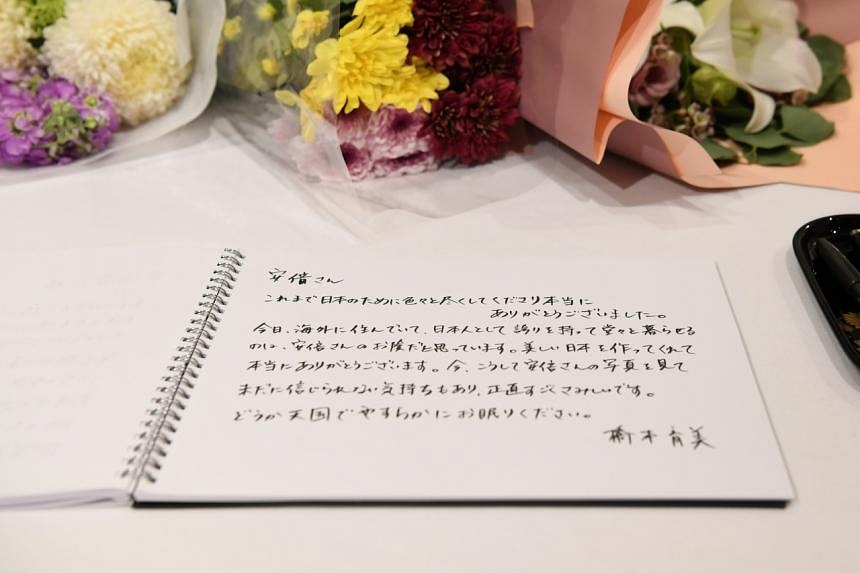 安倍さん
これまで日本のために色々と尽くしてくださり本当に
ありがとうございました。
今日、海外に住んでいて、日本人として誇りを持って堂々と暮らせる
のは、安倍さんのお陰だと思っています。美しい日本を作ってくれて
本当にありがとうございます。今、こうして安倍さんの写真を見て
まだに信じられない気持ちもあり、正直すごくさみしいです。
どうか天国でやすらかにお眠りください。
橋本育美